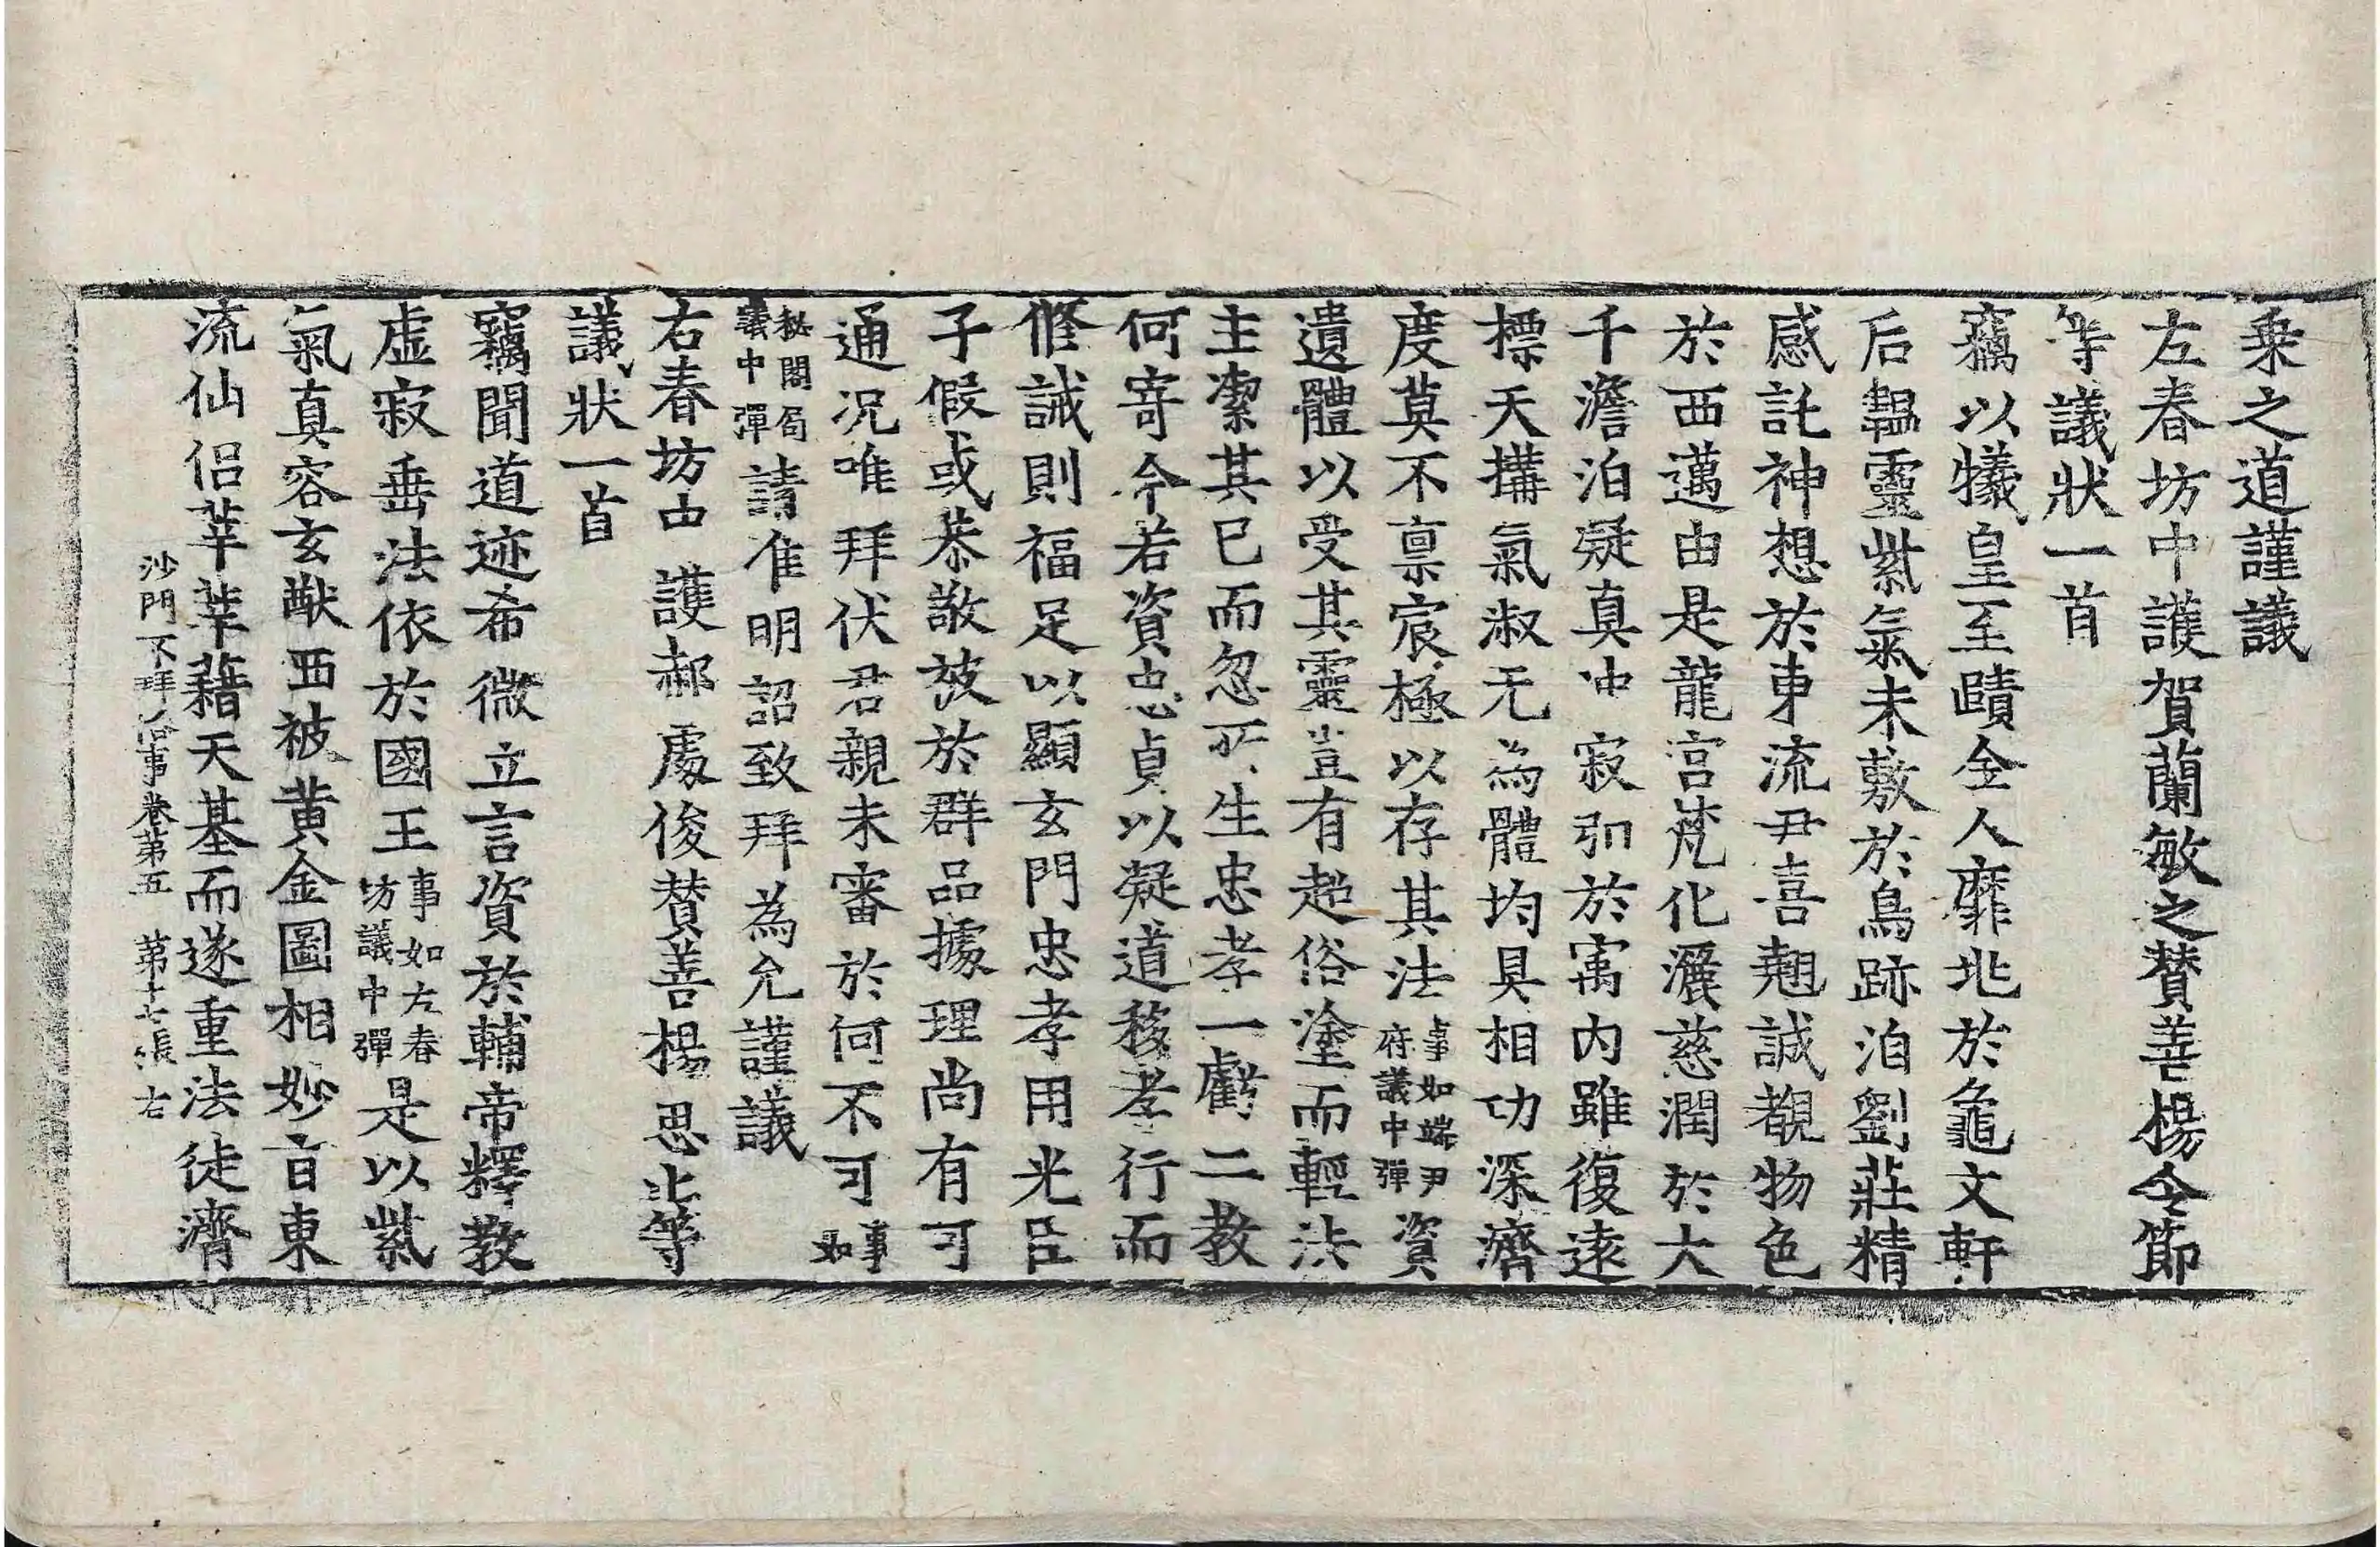 乘之道謹議
左春坊中護賀蘭敏之贊善楊令節
等議狀一首
竊以犧皇至賾全人靡兆於龜文軒
后韞靈紫氣未敷於鳥跡洎劉莊精
感託神想於東流尹喜翹誠覩物色
於西邁由是龍宫梵化灑慈潤於大
千澹泊凝真冲寂引於寓内雖復遠
標天構氣淑无為體均具相功深濟
度莫不禀宸極以存其法事如端尹府議中彈資
遺體以受其靈豈有超俗塗而輕法
主潔其已而忽所生忠孝一虧二教
何寄今若資忠貞以凝道移孝行而
修誡則福足以顯玄門忠孝用光臣
子假或恭敬被於群品據理尚有可
通況唯拜伏君親未審於何不可事如
秘閣局議中彈請准明詔致拜為允謹議
右春坊中護郝處俊贊善楊思止等
議狀一首
竊聞道迹希微立言資於輔帝釋教
虚寂垂法依於國王事如左春坊議中彈是以紫
氣真容玄猷西被黄金圖相妙旨東
流仙侣莘莘藉天基而遂重法徒濟
沙門不拜俗事卷第五 第十七張 右